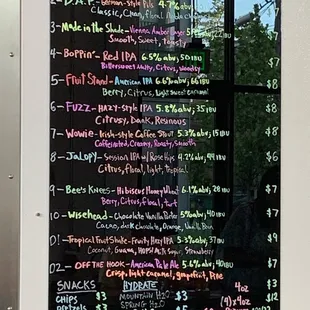 2-D.A.P- German-Style Pils 4.7% abv
Classic, Clean, floral
3-Made in the Shade-Vienna Amber Lager
Smooth, Sweet, Toasty $7
4- Boppin'- Red IPA 6.5% abv; 50 IBU
Bittersweet Malty, Citrus, Woody $7
5- Fruit Stand- American IPA 6.6% abv; 66 IBU
Berry, Citrus, Light Sweet Caramel $8
6- FUZZ- HAZY-Style IPA 5.8% abv; 35 IBU
Citrusy, Dank, Resinous $8
7- Wowie- Irish-style Coffee Stout 5.3% abv; 15 IBU
Caffeinated, Creamy, Roasty, Smooth $8
8- Jalopy- Session IPA w/ Rose Hips 4.2% abv; 44 IBU
Citrus, floral, light, Tropical $6
9- Bee's Knees- Hibiscus Honey Wheat 6.1% abv; 28 IBU
Berry, Citrus, floral, tart $7
10- Wisehead- Chocolate Vanilla Porter 5% abv; 40 IBU
Cacao, dark chocolate, Orange, Vanilla Bean $7
D!- Tropical Fruit Shake- Fruity Hazy IPA 5.3% abv; 37 IBU
Coconut, Guava, Milk Sugar, Strawberry $9
D2- OFF THE HOOK- American Pale Ale 5.6% abv; 40 IBU
Crisp, light caramel, grapefruit, Pine $7
SNACKS HYDRATE 4oz $3
CHIPS $3 MOUNTAIN H2O $3 (4)x4oz $12
PRETZELS SPRING H2O